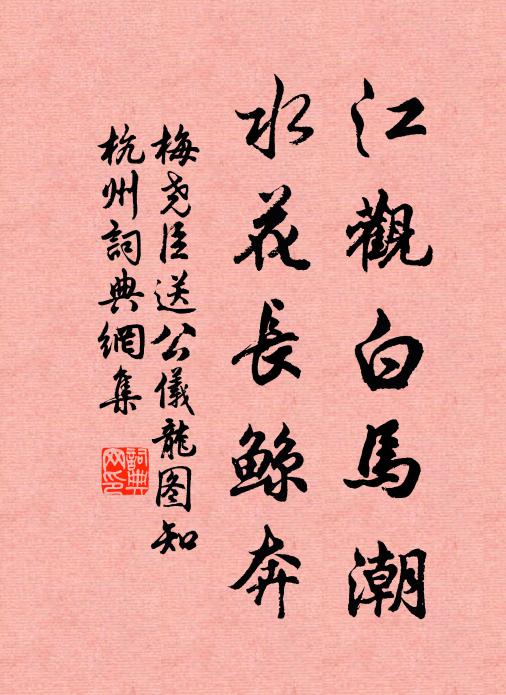 江觀白馬潮
水花長鲸奔
梅尧臣送公儀龍图知
杭州詞典網集
詞典网印